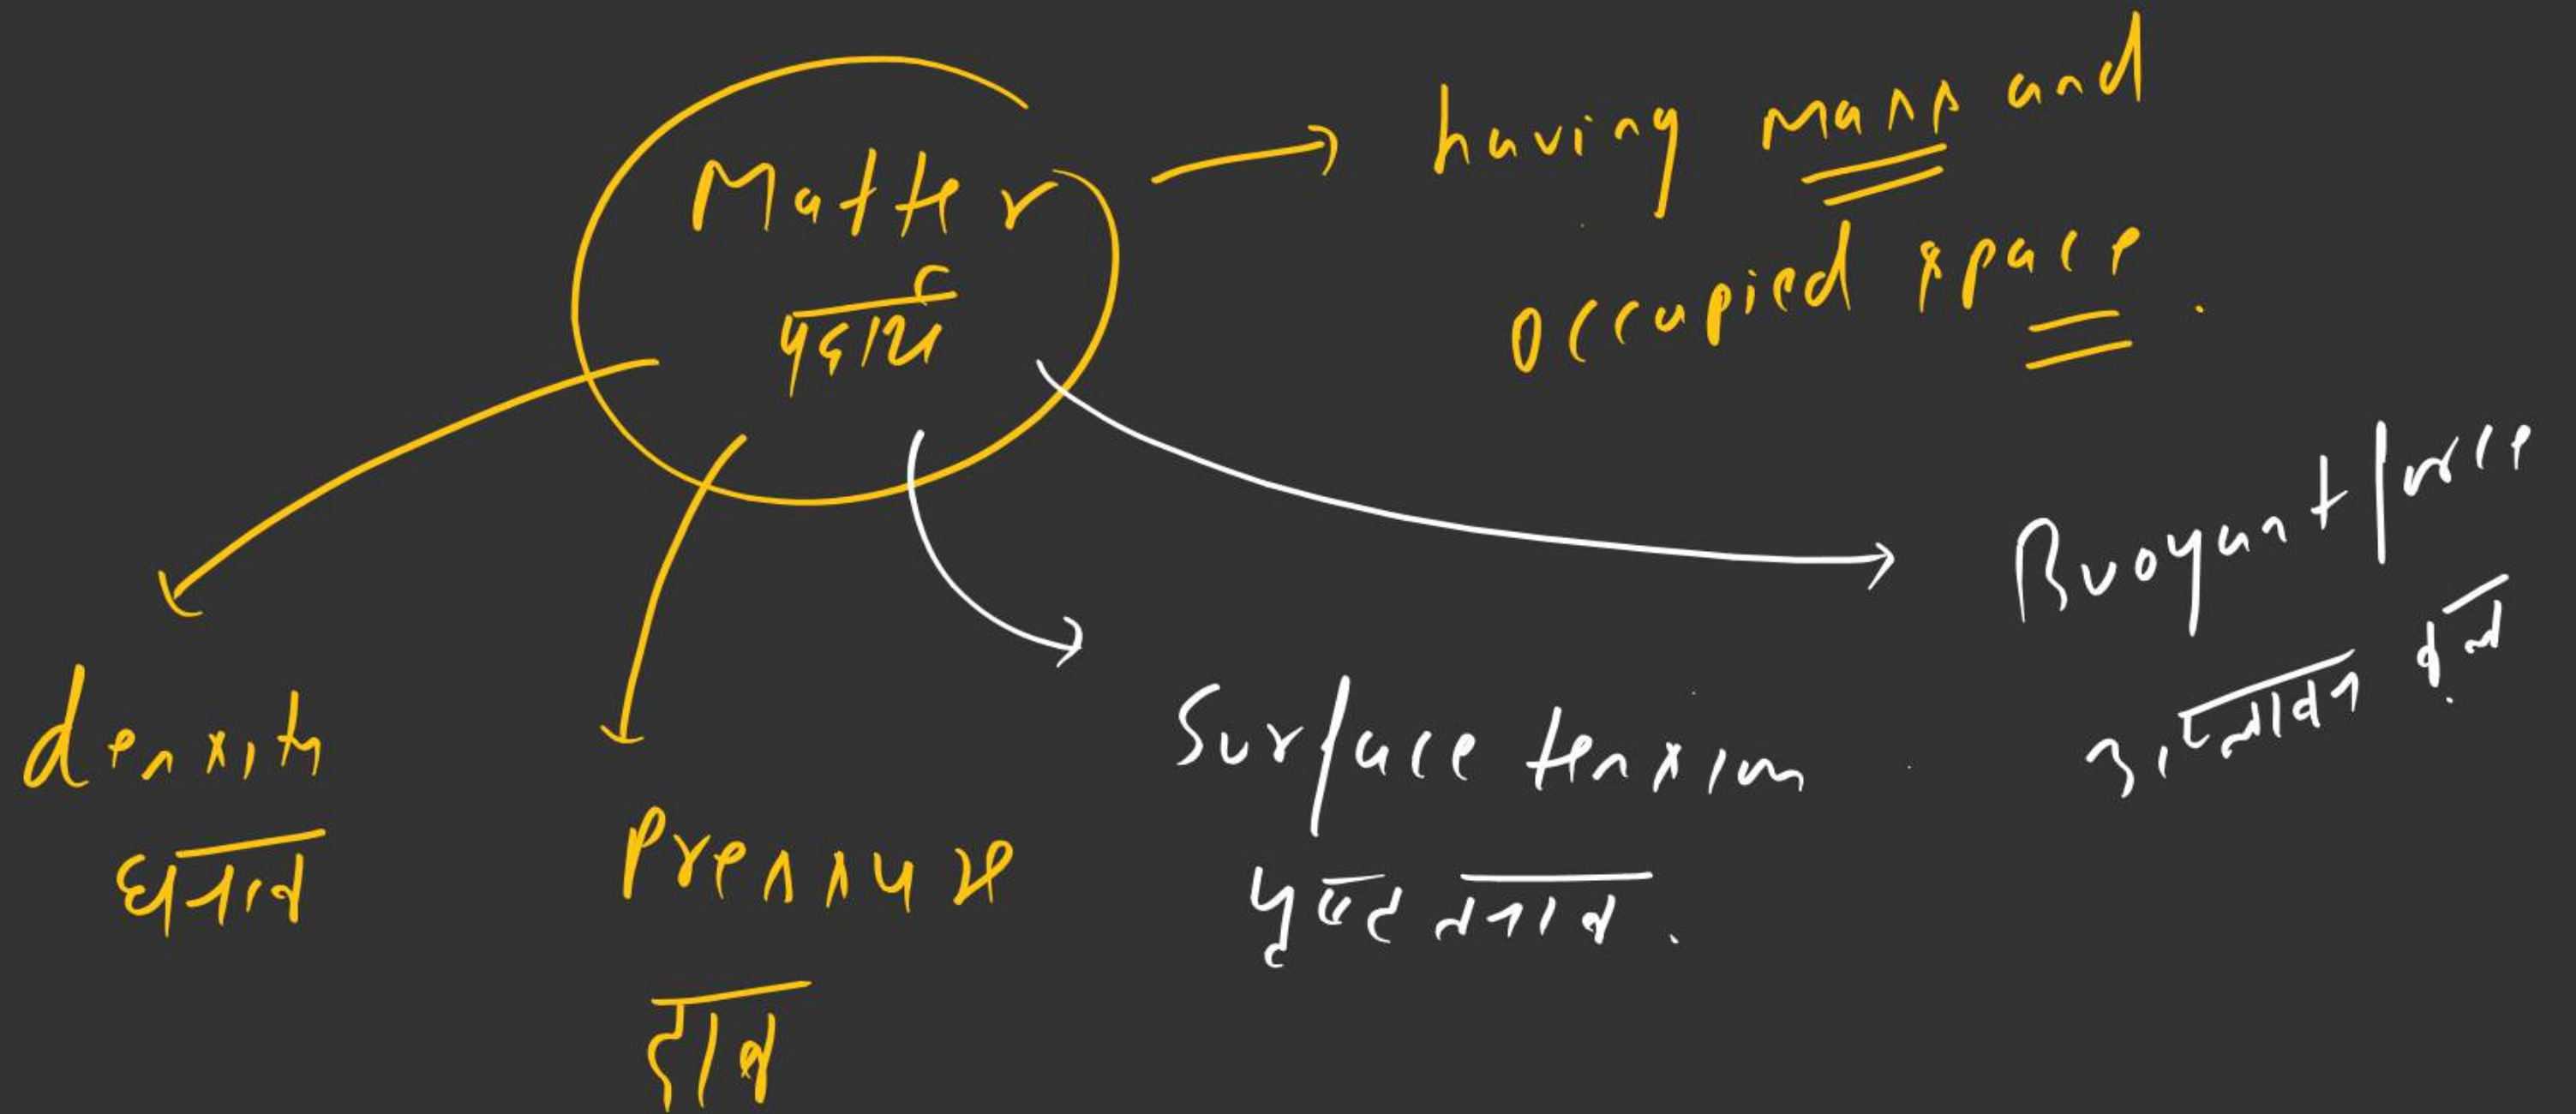 Matter
पदार्थ
having mass and
occupied space.
density
घनत्व
Pressure
दाब
Surface tension
पृष्ठ तनाव.
Buoyant force
उत्प्लावन बल